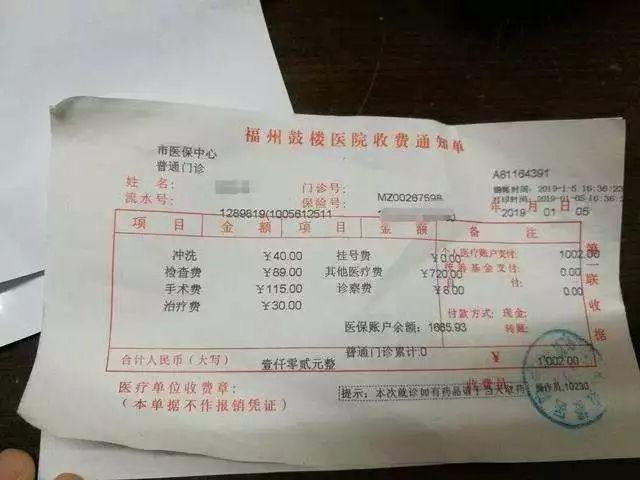 福州鼓楼医院收费通知单
市医保中心
普通门诊
A81164391
姓名:
门诊号:
结帐时间: 2019-1-5 16:36:23
流水号:
保险号:
MZ00267598
打印时间: 2019-01-05 16:36:2
1289619(1005612511
年 月 日
2019 01 05
项目 金额 项目 金额 备注
冲洗 ¥40.00 挂号费 ¥0.00 个人医疗账户支付: 1002.00
检查费 ¥89.00 其他医疗费 ¥720.00 统筹基金支付: 0.00
手术费 ¥115.00 诊察费 ¥8.00 付: 0.00
治疗费 ¥30.00
付款方式: 现金:
医保账户余额: 1665.93 转账:
普通门诊累计:0
合计人民币(大写) 壹仟零贰元整 ¥ 1002.00
医疗单位收费章: 收费员:
提示: 本次就诊如有药品请于当天取药 操作员:10230
(本单据不作报销凭证)
第一联收据